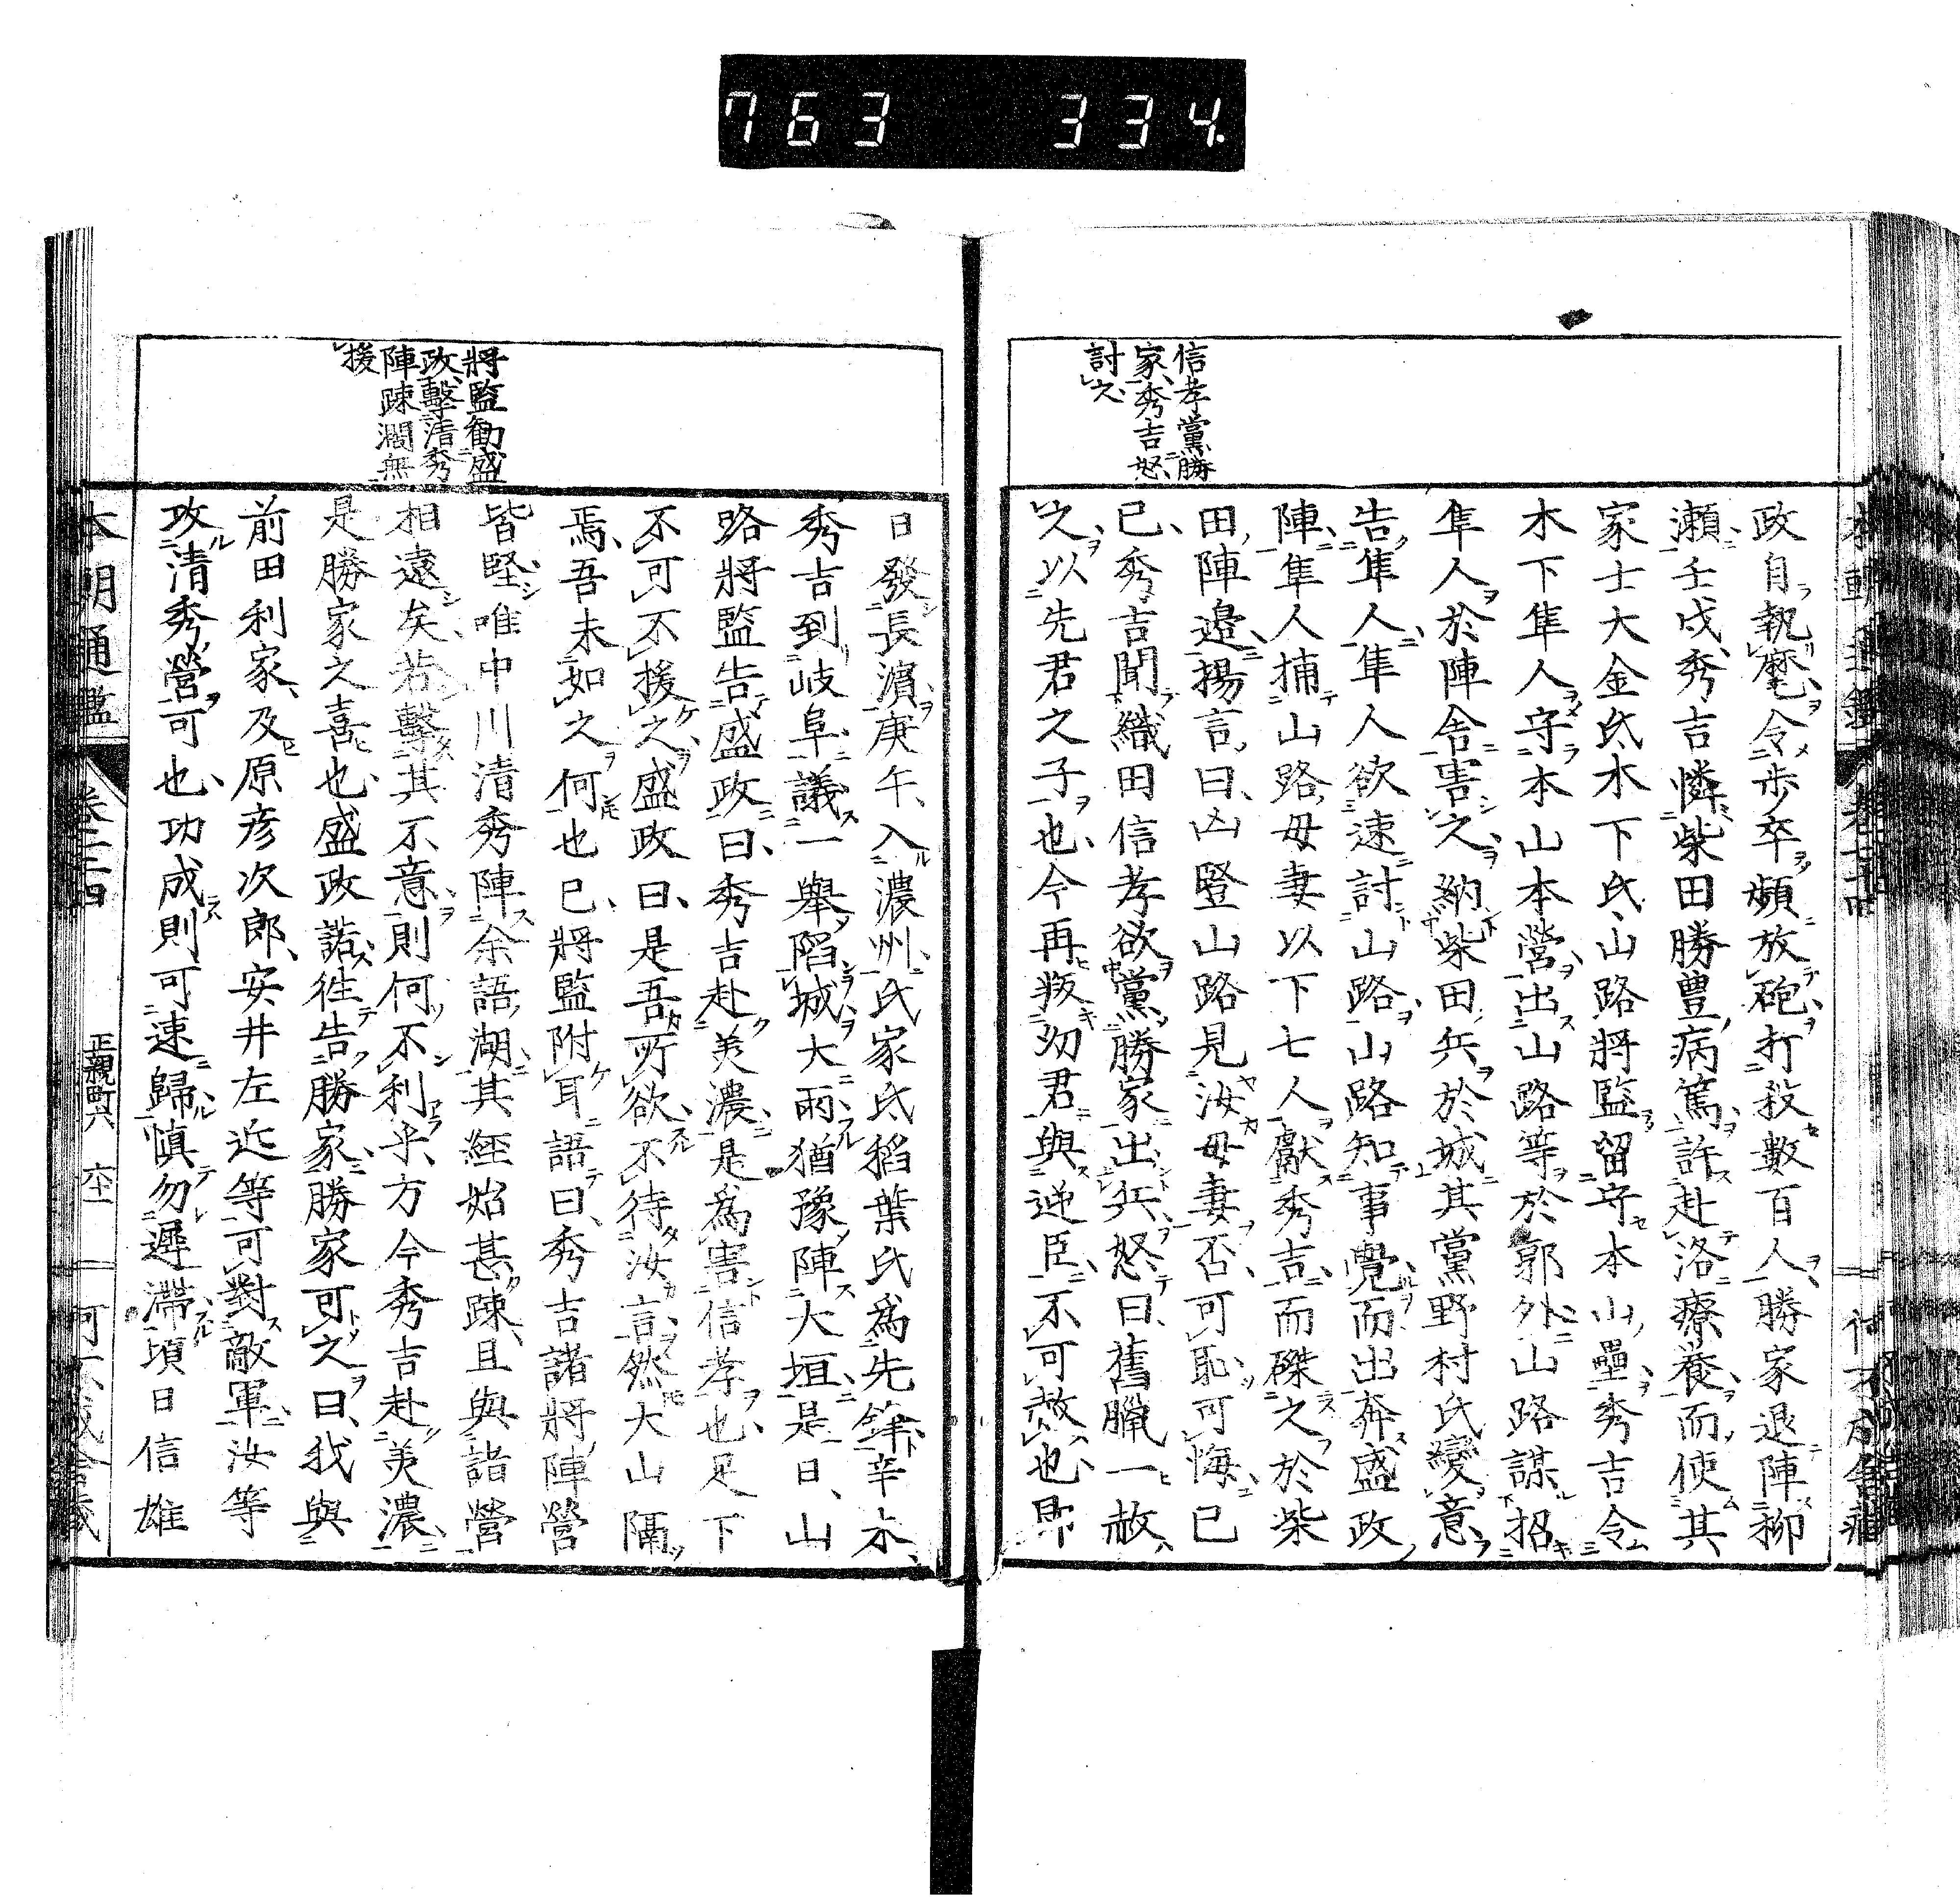 763 334
信孝黨勝
家、秀吉怒
討之
政自執麾令歩卒頻放砲打殺數百人勝家退陣柳
瀬壬戌秀吉憐柴田勝豊病篤許赴洛療養而使其
家士大金氏木下氏山路將監留守本山壘秀吉令
木下隼人守本山本營出山路等於郭外山路謀招
隼人於陣舎害之納柴田兵於城其黨野村氏變意
告隼人隼人欲速討山路山路知事覺而出奔盛政
陣隼人捕山路母妻以下七人獻秀吉而磔之於柴
田陣邉揚言曰凶竪山路見汝母妻否可恥可悔已
已秀吉聞織田信孝欲黨勝家出兵怒曰舊臘一赦
之以先君之子也今再叛幼君與逆臣不可赦也即
將監勸盛
政擊清秀
陣疎濶無
援
日發長濵庚午入濃州氏家氏稻葉氏爲先鋒辛未
秀吉到岐阜議一舉陷城大雨猶豫陣大垣是日山
路將監告盛政曰秀吉赴美濃是爲害信孝也足下
不可不援之盛政曰是吾所欲不待汝言然大山隔
焉吾未如之何也已將監附耳語曰秀吉諸將陣營
皆堅唯中川清秀陣余語湖其經始甚疎且與諸營
相遠矣若擊其不意則何不利乎方今秀吉赴美濃
是勝家之喜也盛政諾徃告勝家勝家可之曰我與
前田利家及原彦次郎安井左近等可對敵軍汝等
攻清秀營可也功成則可速歸愼勿遲滯頃日信雄
本朝通鑑
正親町六